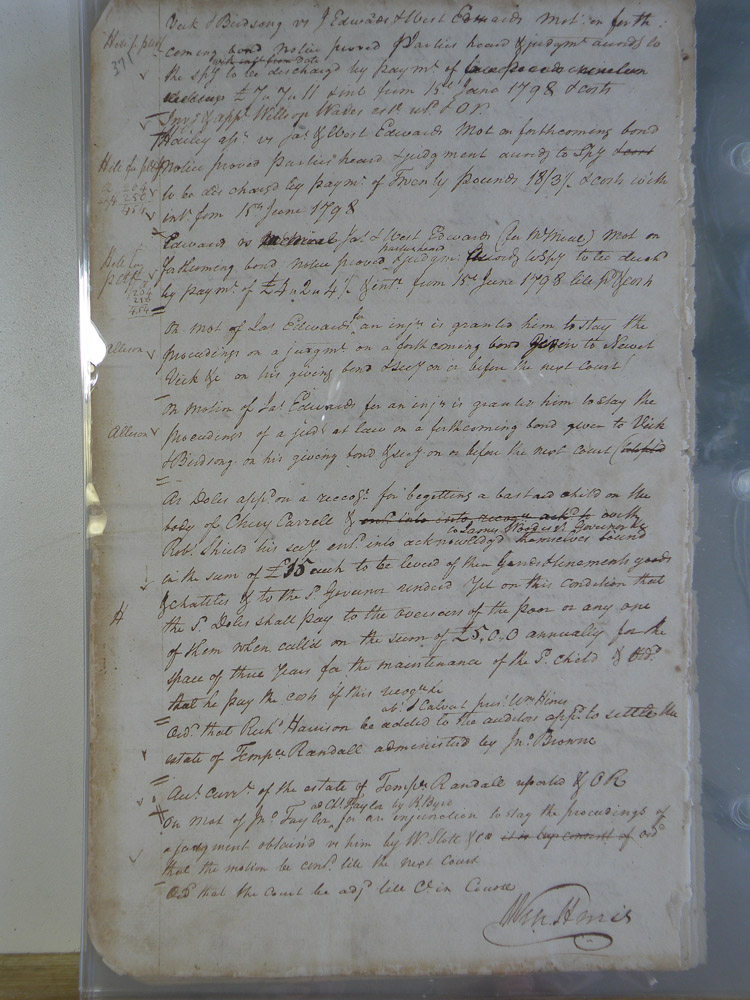 Vick & Birdsong vs J Edwards & West Edwards Mot: on forth
coming bond Notice proved Parties heard & judgmt awardd to
with int from date
the spy to be dischargd by paymt of
£7.7.11 & int from 15th June 1798 & costs
Invy & appt Willson Wades est. & OR.
Hailey assee vs Jas & West Edwards Mot on forthcoming bond
Notice proved Parties heard & judgment awardd to Spy & cost
to be dischargd by paymt of Twenty pounds 18/3½ & costs with
int from 15th June 1798
Edwards vs Jas & West Edwards (for McNeal) Mot on
parties heard
forthcoming bond notice proved & judgmt awardd to spy to be disch
by paymt of £4.2.4½ & intt from 15th June 1798 till pd & costs
On mot of Jas Edwards for an injn is granted him to stay the
Allison
proceedings on a judgmt on a forthcoming bond given to Newet
Vick &c on his giving bond & secy on or before the next Court
On motion of Jas Edwards for an injn is granted him to stay the
Allison
proceedings of a judt at law on a forthcoming bond given to Vick
& Birdsong on his giving bond & secy on or before the next court
Ar Doles appd on a recogz for begetting a bastard child on the
body of Chery Carrell & with
to James Wood esqr Governor &c
Robt Shield his secy entd into acknowledgd themselves bound
in the sum of £15 each to be levied of their lands & tenements goods
& chattles & to the sd Governor rendered Yet on this condition that
H
the sd Doles shall pay to the overseers of the poor or any one
of them when calld on the sum of £5.0.0 annually for the
space of three Years for the maintenance of the sd child & Ordd
that he pay the costs of this recognce
abt Calvert prest Wm Hines
Ordd that Richd Harrison be added to the auditors appd to settle the
estate of Tempce Randall administerd by Jno Browne
Acct Currt of the estate of Tempce Randall reported & OR
ad Ch Taylor by R Byrd
On mot of Jno Taylor for an injunction to stay the proceedings of
a judgment obtaind vs him by W Stott & co ordd
that the motion be contd till the next Court
Ordd that the Court be adjd till Ct in Course
Wm. Hines